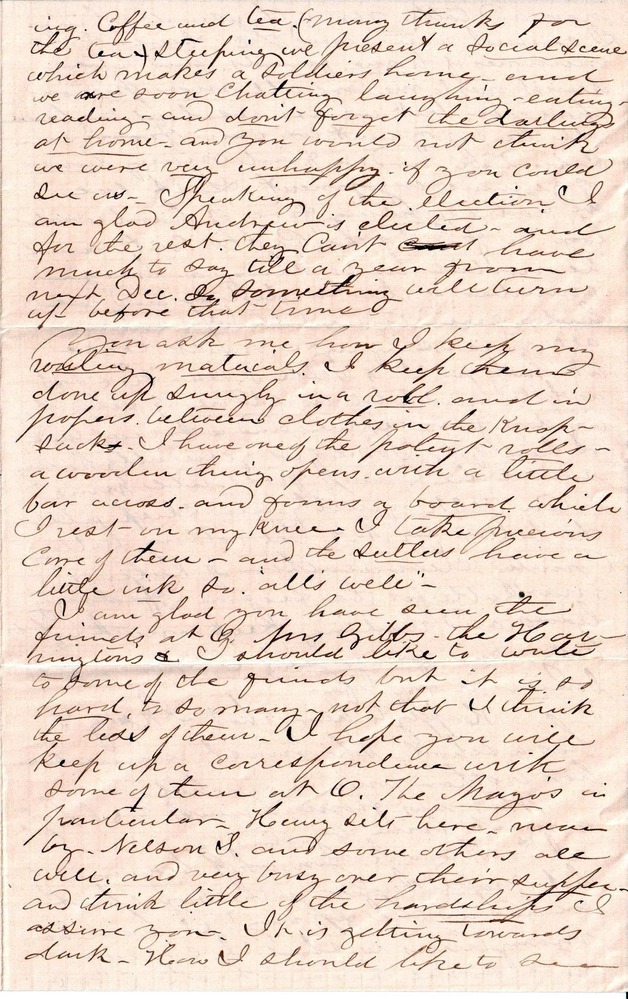 ing. Coffee and tea (many thanks for
the tea) steeping we present a social scene
which makes a soldiers home - and
we are soon chatting laughing - eating -
reading - and don't forget the darlings
at home - and you would not think
we were very unhappy if you could
see us - Speaking of the election I
am glad Andrew is elected - and
for the rest they can't have
much to say till a year from
next Dec. So something will turn
up before that time
You ask me how I keep my
writing materials. I keep them
done up snugly in a roll and in
papers between clothes in the Knap-
sack. I have one of the patent rolls -
a wooden thing opens with a little
bar across - and forms a board which
I rest on my knee. I take precious
care of them - and the sutlers have a
little ink so "all's well" -
I am glad you have seen the
friends at O. Mrs Gibbs - the Har-
ringtons & I should like to write
to some of the friends but it is so
hard to so many - not that I think
the less of them - I hope you will
keep up a correspondence with
some of them at O. The Mayo's in
particular - Henry sits here - near
by - Nelson S. and some others all
well. and very busy over their supper -
and think little of the hardships I
assure you - It is getting towards
dark - How I should like to see